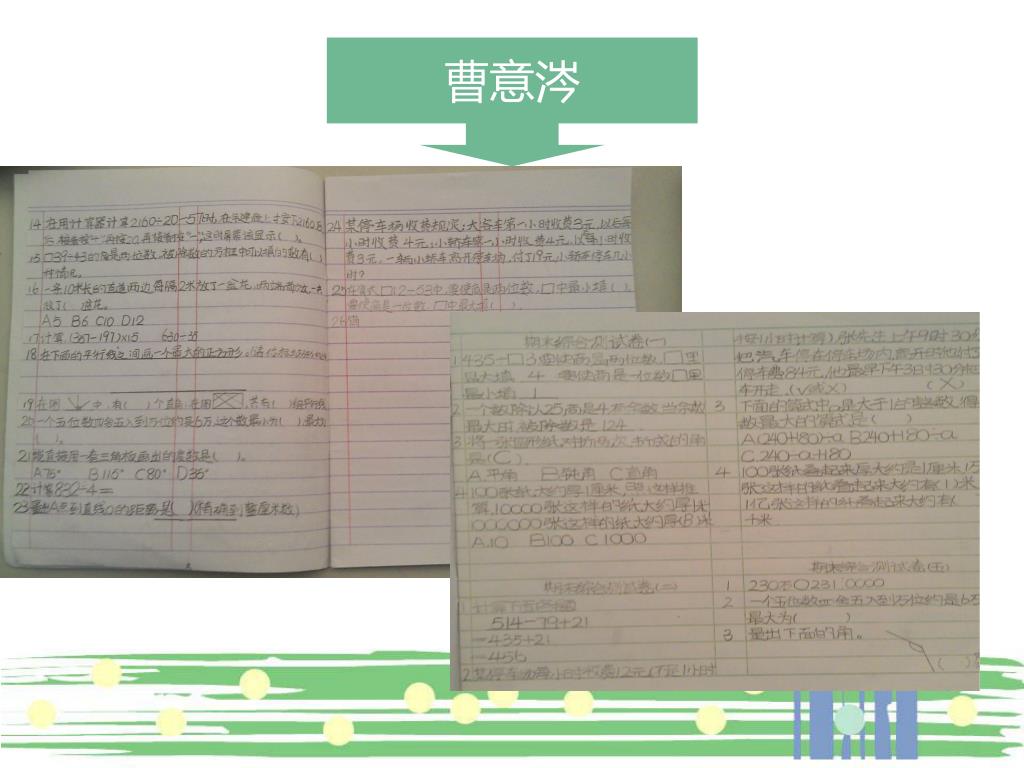 曹意涔
14 在用计算器计算2160÷20-57时,在
15 □39÷43的商是两位数,被除数的方框中可以填的数有( )
种情况。
16 一条10米长的直道两边每隔2米放了一盆花,两端都放,一共
放了( )盆花。
A5 B6 C10 D12
17 计算.(387-197)×15 630÷35
18 在下面的平行线之间画一个最大的正方形。
19 在图 中,有( )个直角,在图 ,共有( )组平行线
20 一个五位数四舍五入到万位约是6万,这个数最小为( ),最大为
( )。
21 能直接用一套三角板画出的度数是( )。
A75° B115° C80° D35°
22 计算832÷4=
23 量出A点到直线O的距离是( )(精确到整厘米数)
24 某停车场收费规定:大客车第一小时收费3元,以后每
小时收费4元;小轿车第一小时收费4元,以后每小时收
费3元,一辆小轿车离开停车场,付了19元,小轿车停车几小
时?
25 在算式□12÷53中,要使商是两位数,□中最小填( ),
要使商是一位数,□中最大填( )。
期末综合测试卷(一)
1 435÷□3要使商是两位数,□里
以大填 4 要使商是一位数□里
最小填 1
2 一个数除以25商是4有余数,当余数
最大时,被除数是124
3 将一张圆形纸对折两次,折成的角
是(C)
A.平角 B钝角 C直角
4 100张纸大约厚1厘米,照这样推
算,10000张这样的纸大约厚1米
1000000张这样的纸大约厚(B)米
A.10 B100 C1000
期末综合测试卷(二)
1 计算下面各题
514-79+21
=435+21
=456
2 某停车场每小时收费12元(不足1小时
按1小时计算),张先生上午9时30分
把汽车停在停车场内,离开时他付了
停车费84元,他最早下午3时30分把
车开走.(√或×) (×)
3 下面的算式中a是大于1的整数,得
数最大的算式是( )
A(240+80)÷a B240+180÷a
C.240÷a+180
4 100张纸叠起来厚大约是1厘米,1万
张这样的纸叠起来大约有(1)米
1亿张这样的纸叠起来大约有(
)米
期末综合测试卷(五)
1 230万○2310000
2 一个五位数四舍五入到万位约是6万
最大为( )
3 量出下面的角。
( )